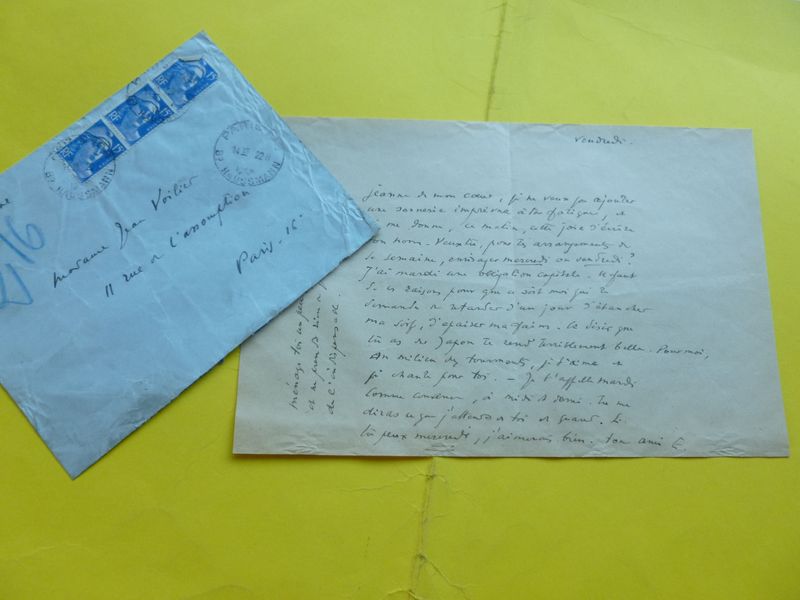 RF 15
RF 15
RF 15
PARIS
22
Bd HAUSSMANN
Bd HAUSSMANN
Madame Jean Voilier
11 rue de l'assomption
Paris - 16
vendredi.
jeanne de mon cœur, je ne veux pas ajouter
une sonnerie imprévue à ta fatigue, et
me donne, ce matin, cette joie d'écrire
ton nom. Veux-tu, pour tes arrangements de
la semaine, envisager mercredi ou vendredi ?
J'ai mardi une obligation capitale. Il faut
de ces raisons pour que ce soit moi qui te
demande de retarder d'un jour d'étancher
ma soif, d'apaiser ma faim. Ce désir que
tu as du Japon te rend terriblement belle. Pour moi,
au milieu des tourments, je t'aime et
je chante pour toi. - Je t'appelle mardi
comme convenu, à midi et demi. Tu me
diras ce que j'attends de toi et quand. Si
tu peux mercredi, j'aimerais bien. ton ami
ménage toi un peu
et ne prends rien
de l'indispensable.